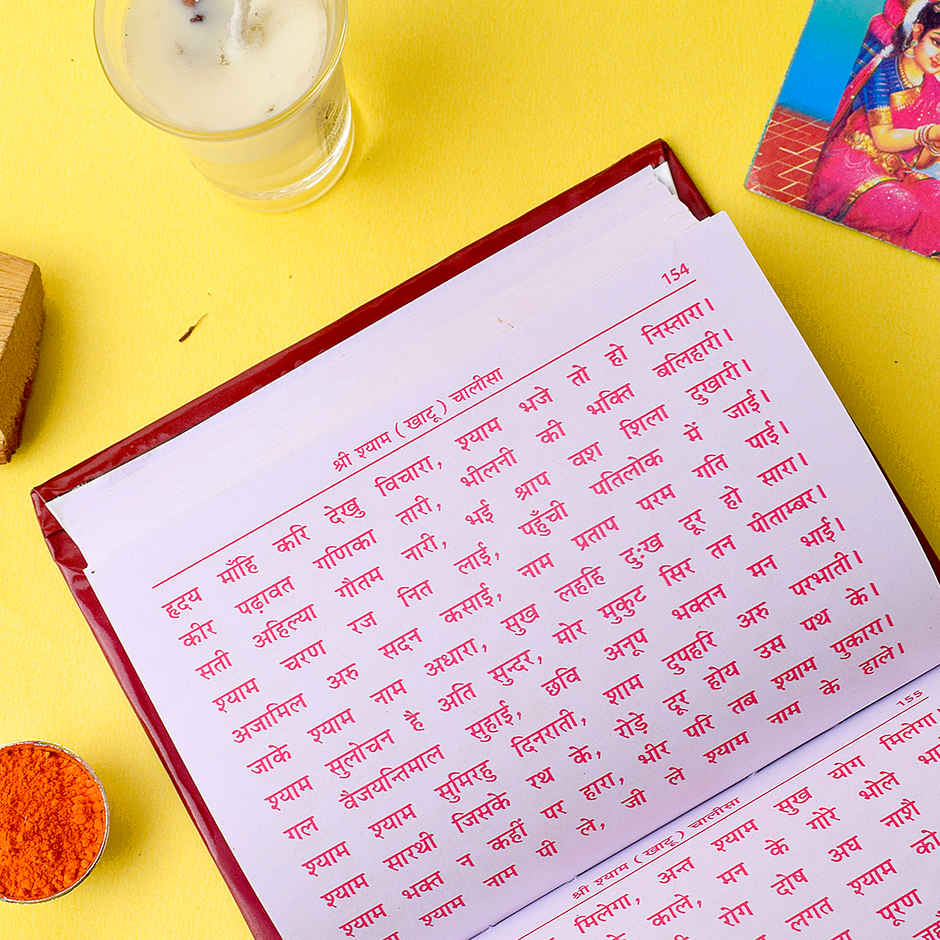 154
श्री श्याम ( खाटू ) चालीसा
हृदय माँहि करि देखु विचारा, श्याम भजे तो हो निस्तारा।
कीर पढ़ावत गणिका तारी, भीलनी की भक्ति बलिहारी।
सती अहिल्या गौतम नारी, भई श्राप वश शिला दुखारी।
श्याम चरण रज नित लाई, पहुँची पतिलोक में जाई।
अजामिल अरु सदन कसाई, नाम प्रताप परम गति पाई।
जाके श्याम नाम अधारा, सुख लहहि दुःख दूर हो सारा।
श्याम सुलोचन है अति सुन्दर, मोर मुकुट सिर तन पीताम्बर।
गल वैजयन्तिमाल सुहाई, छवि अनूप भक्तन मन भाई।
श्याम श्याम सुमिरहु दिनराती, शाम दुपहरि अरु परभाती।
श्याम सारथी जिसके रथ के, रोड़े दूर होय उस पथ के।
श्याम भक्त न कहीं पर हारा, भीर परि तब श्याम पुकारा।
श्याम नाम पी ले, जी ले श्याम नाम के हाले।
155
श्री श्याम ( खाटू ) चालीसा
मिलेगा, अन्त श्याम सुख योग मिलेगा
काले, मन के गोरे भोले
रोग दोष अघ नाशै
लगत श्याम को
पूरण